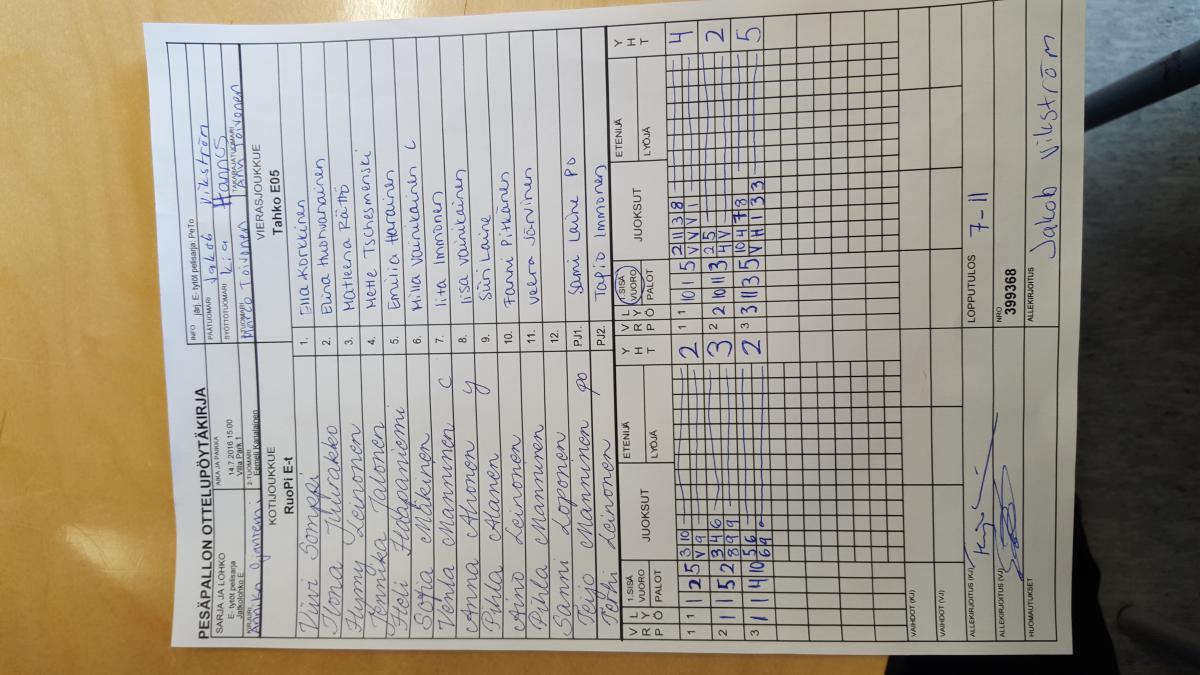 PESÄPALLON OTTELUPÖYTÄKIRJA
SARJA JA LOHKO
E- tytöt pelisarja
Jatkolohko E
AIKA JA PAIKKA
14.7.2016 15:00
Villa Park 1
INFO järj. E- tytöt pelisarja: PeTo
PÄÄTUOMARI Jakob Vikström
SYÖTTÖTUOMARI Kia Hannes
KIRJURI
Annika
2-TUOMARI
Eemeli Karjalainen
Marco Toivonen
TAKARAJATUOMARI
Ann Toivonen
KOTIJOUKKUE
RuoPi E-t
VIERASJOUKKUE
Tahko E05
Viivi Somppi
1. Ella Korkkinen
2. Eina Huovanainen
Hiumy Leinonen
3. Matleena Rättö
Jennika Jalonen
4. Mette Tschesmenski
Heli Hietaniemi
5. Emilia Harainen
Sofia Mäkinen
6. Milla Vainikainen C
Venla Manninen C
7. Iita Immonen
Anna Ahonen y
8. Iisa Vainikainen
Pinla Alanen y
9. Siiri Laine
Aino Leinonen
10. Fanni Pitkänen
Pihla Manninen
11. Veera Järvinen
Sanni Loponen
12.
Teijo Manninen po
PJ1. Sami Laine PO
Leinonen
PJ2. Tapio Immonen
V L
R Y
P Ö
1.SISÄ
VUORO
PALOT
JUOKSUT
ETENIJÄ
LYÖJÄ
Y
H
T
V L
R Y
P Ö
1.SISÄ
VUORO
PALOT
JUOKSUT
ETENIJÄ
LYÖJÄ
Y
H
T
1 1 2 5 3 10 2
V 9
1 1 10 1 5 2 11 3 8 4
V V V 1
2 1 1 5 2 3 4 6 3
8 9 9
2 2 10 11 3 2 5 2
4 V
3 1 4 10 5 6 2
6 9
3 3 11 3 5 10 4 7 8 5
V H 1 3 3
VAIHDOT (KJ)
VAIHDOT (VJ)
ALLEKIRJOITUS (KJ)
LOPPUTULOS 7-11
ALLEKIRJOITUS (VJ)
NRO
399368
HUOMAUTUKSET
ALLEKIRJOITUS
Jakob Vikström